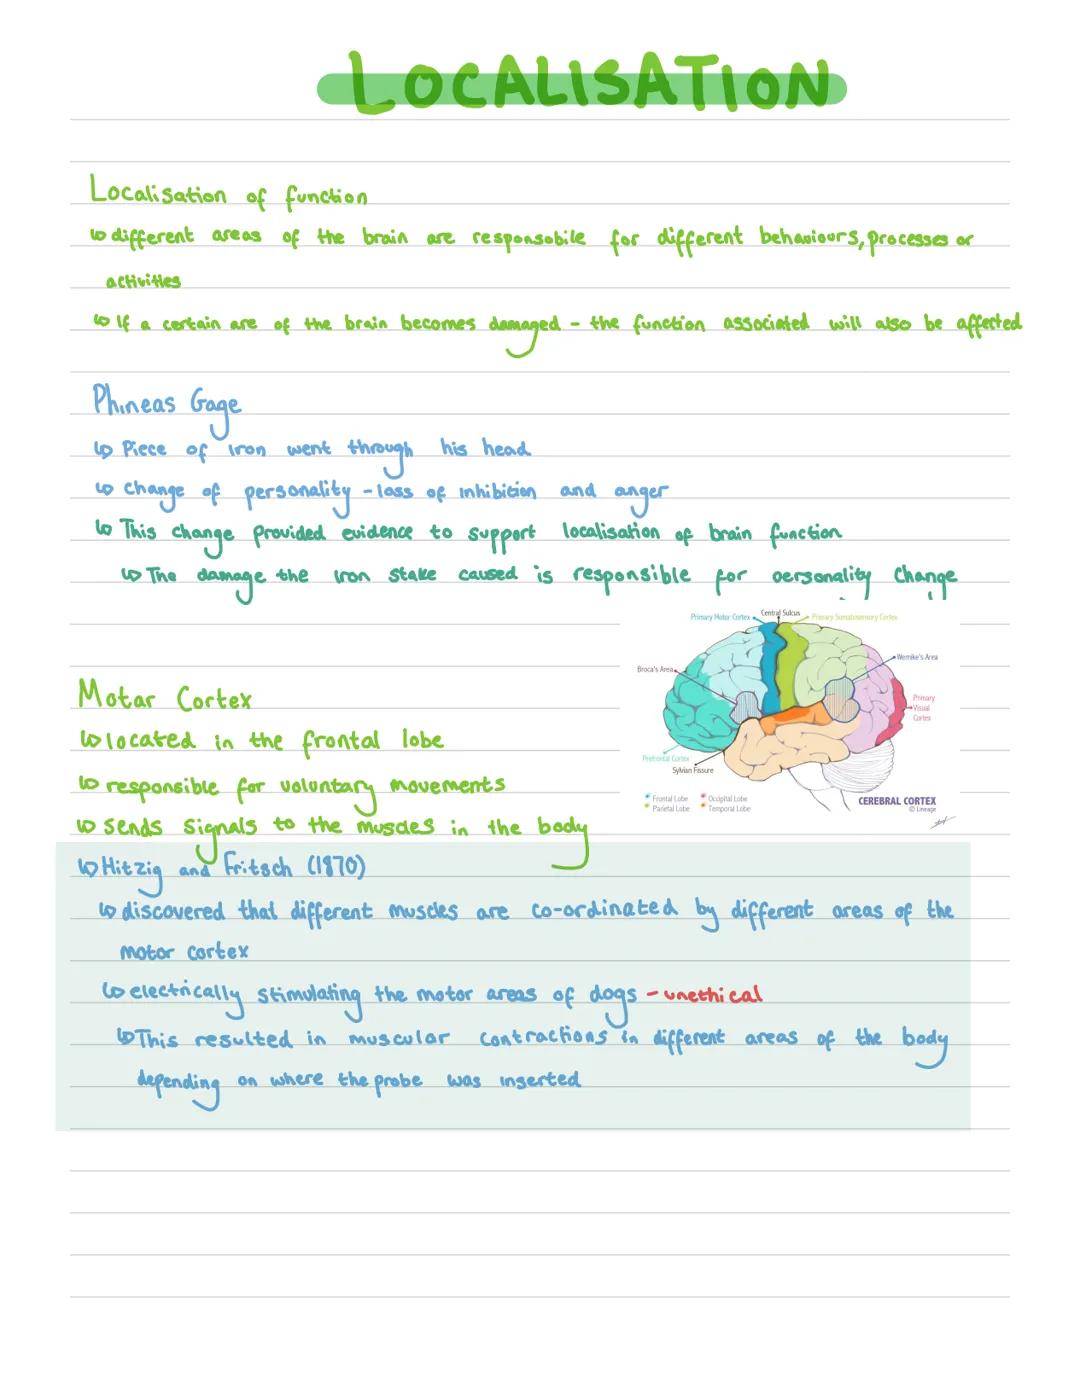 LOCALISATION
Localisation of function
↳ different areas of the brain are responsobile for different behaviours, processes or
activities
↳ If a certain are of the brain becomes damaged - the function associated will also be affected
Phineas Gage
↳ Piece of iron went through his head
↳ change of personality - loss of inhibition and anger
↳ This change provided evidence to support localisation of brain function
↳ The damage the iron stake caused is responsible for personality change
Primary Motor Cortex
Central Sulcus
Primary Somatosensory Cortex
Broca's Area
Wernike's Area
Primary
Visual
Cortex
Prefrontal Cortex
Sylvian Fissure
Frontal Lobe
Occipital Lobe
Parietal Lobe
Temporal Lobe
CEREBRAL CORTEX
© Lineage
Motar Cortex
↳ located in the frontal lobe
↳ responsible for voluntary movements
↳ sends signals to the muscles in the body
↳ Hitzig and Fritsch (1870)
↳ discovered that different muscles are co-ordinated by different areas of the
motor cortex
↳ electrically stimulating the motor areas of dogs - unethical
↳ This resulted in muscular contractions in different areas of the body
depending on where the probe was inserted